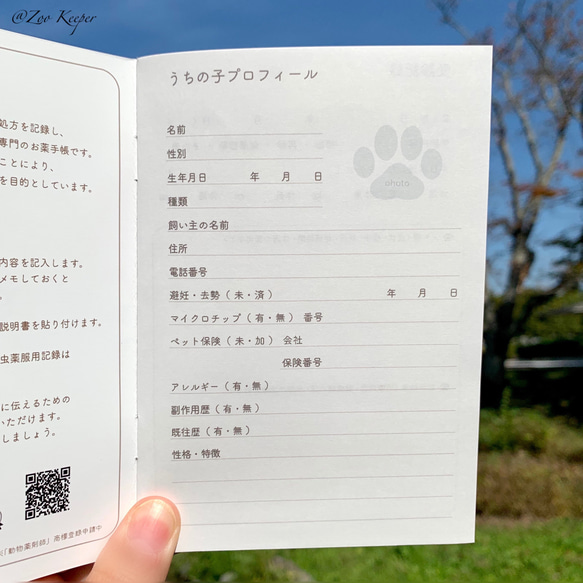 @Zoo Keeper
処方を記録し、
専門のお薬手帳です。
ことにより、
を目的としています。
内容を記入します。
メモしておくと
。
説明書を貼り付けます。
虫薬服用記録は
に伝えるための
いただけます。
しましょう。
「動物薬剤師」商標登録申請中
うちの子プロフィール
名前
性別
生年月日 年 月 日
種類
飼い主の名前
住所
電話番号
避妊・去勢（未・済） 年 月 日
マイクロチップ（有・無）番号
ペット保険（未・加）会社
保険番号
アレルギー（有・無）
副作用歴（有・無）
既往歴（有・無）
性格・特徴
ohuta